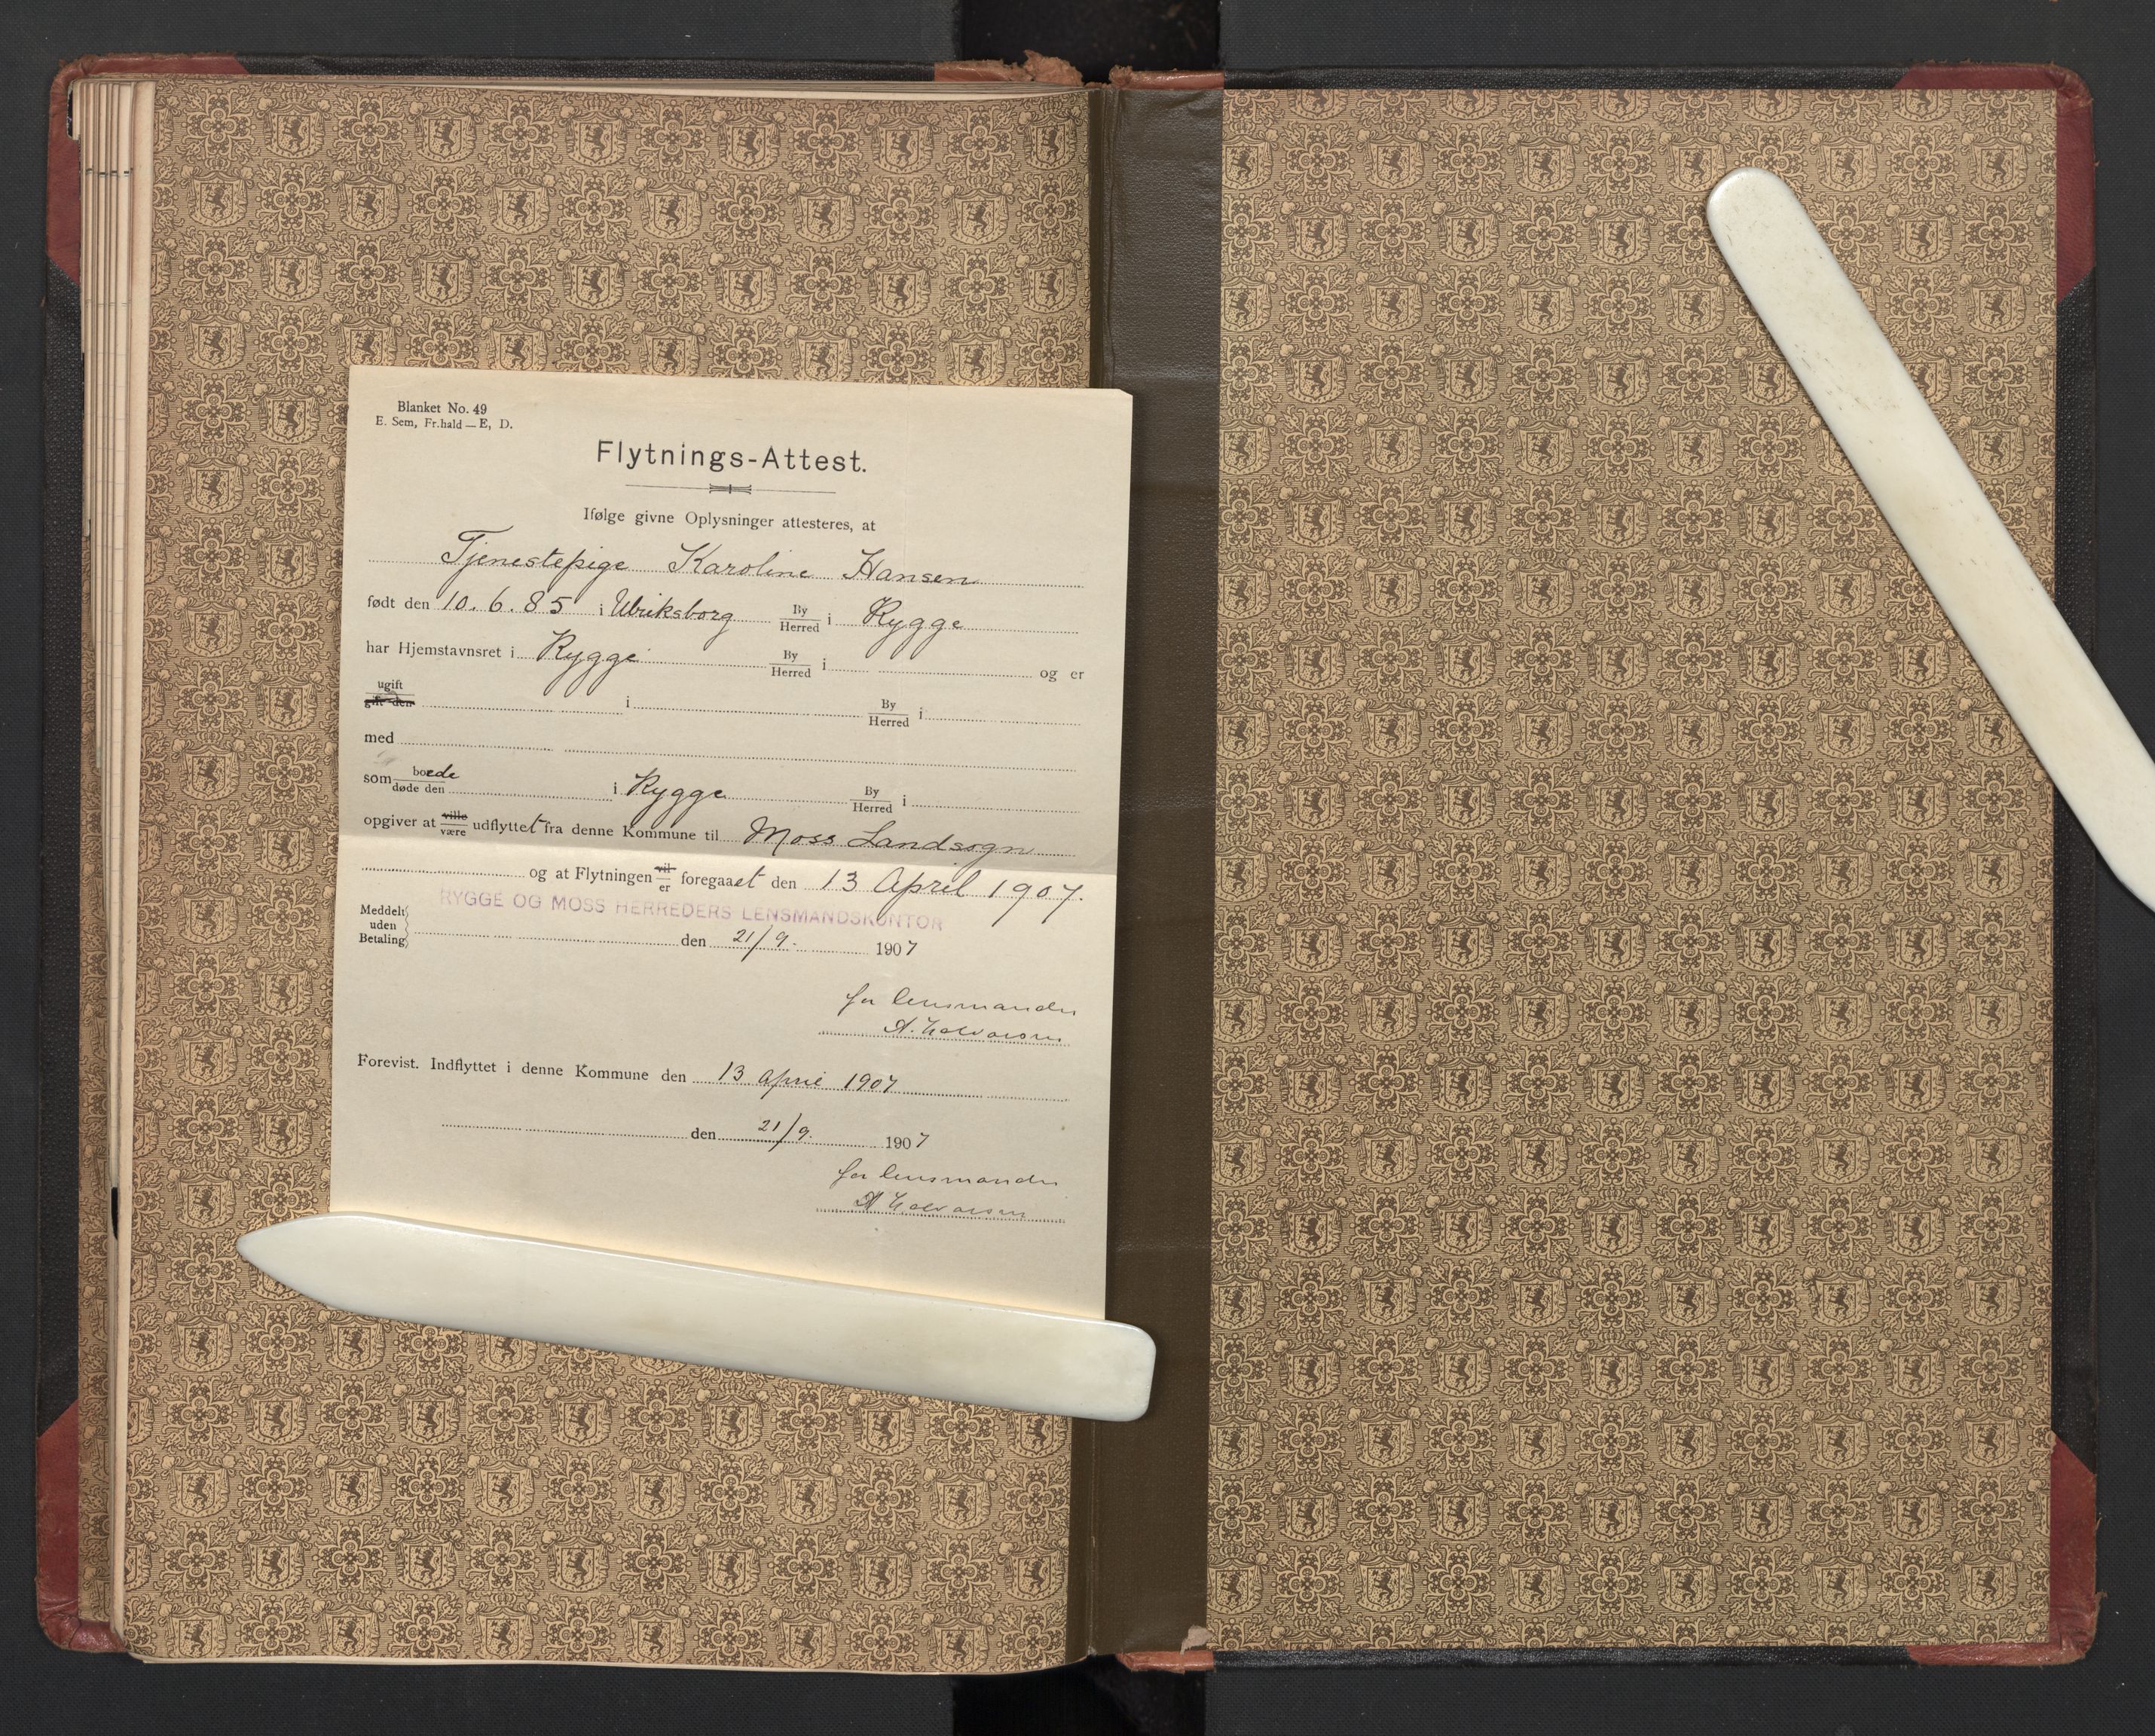 Blanket No. 49
E. Sem, Fr.hald — E, D.
Flytnings-Attest.
Ifølge givne Oplysninger attesteres, at
Tjenestepige Karoline Hansen
født den 10. 6. 85 i Ulriksborg By Herred i Rygge
har Hjemstavnsret i Rygge By Herred i og er
ugift
gift den i By Herred i
med
som boede døde den i Rygge By Herred i
opgiver at ville være udflyttet fra denne Kommune til Moss Landsogn
og at Flytningen vil er foregaaet den 13 April 1907.
RYGGE OG MOSS HERREDERS LENSMANDSKONTOR
Meddelt uden Betaling den 21/9. 1907
for lensmanden
A. Halvorsen
Forevist. Indflyttet i denne Kommune den 13 April 1907
den 21/9. 1907
for lensmanden
A Halvorsen